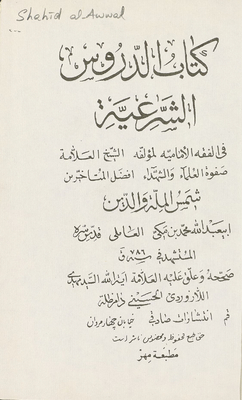 Shahid al-Awwal
كتاب الدروس
الشرعية
فى الفقه الامامية لمؤلفه الشيخ العلامة
صفوة العلماء والشهداء افضل المتأخرين
شمس الملة والدين
ابيعبدالله محمد بن مكى العاملى قدس سره
المستشهد فى سنة ٧٨٦ ق
صححه وعلق عليه العلامة اية الله السيد مهدى
اللازوردى الحسينى دام ظله
قم انتشارات صادقى خيابان چهارمردان
حق طبع محفوظ ومخصوص ناشر است
مطبعة مهر